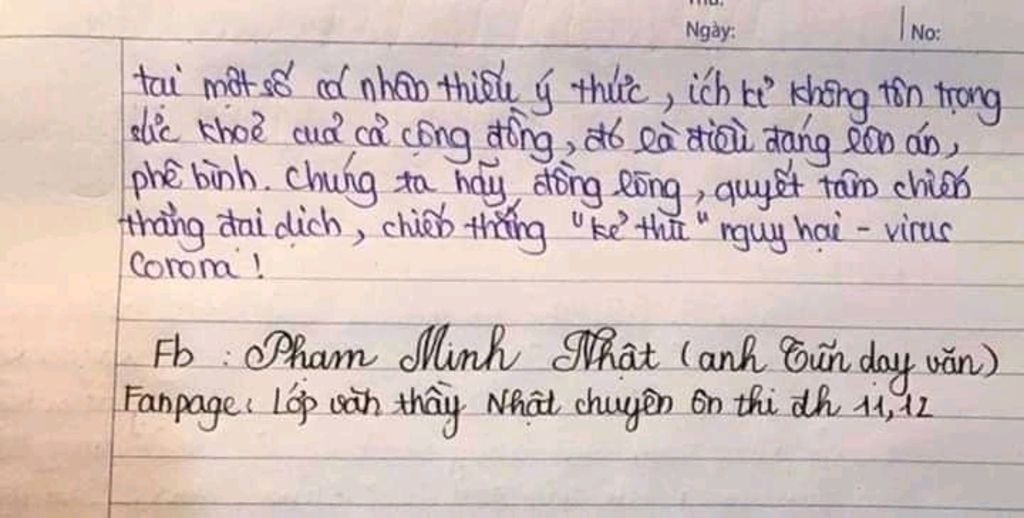 Ngày:
No:
tại một số cá nhân thiếu ý thức, ích kỉ không tôn trọng
sức khoẻ của cả cộng đồng, đó là điều đáng lên án,
phê bình. Chúng ta hãy đồng lòng, quyết tâm chiến
thắng đại dịch, chiến thắng "kẻ thù" nguy hại - virus
Corona!
Fb : Phạm Minh Nhật (anh Tũn dạy văn)
Fanpage: Lớp văn thầy Nhật chuyên ôn thi đh 11,12